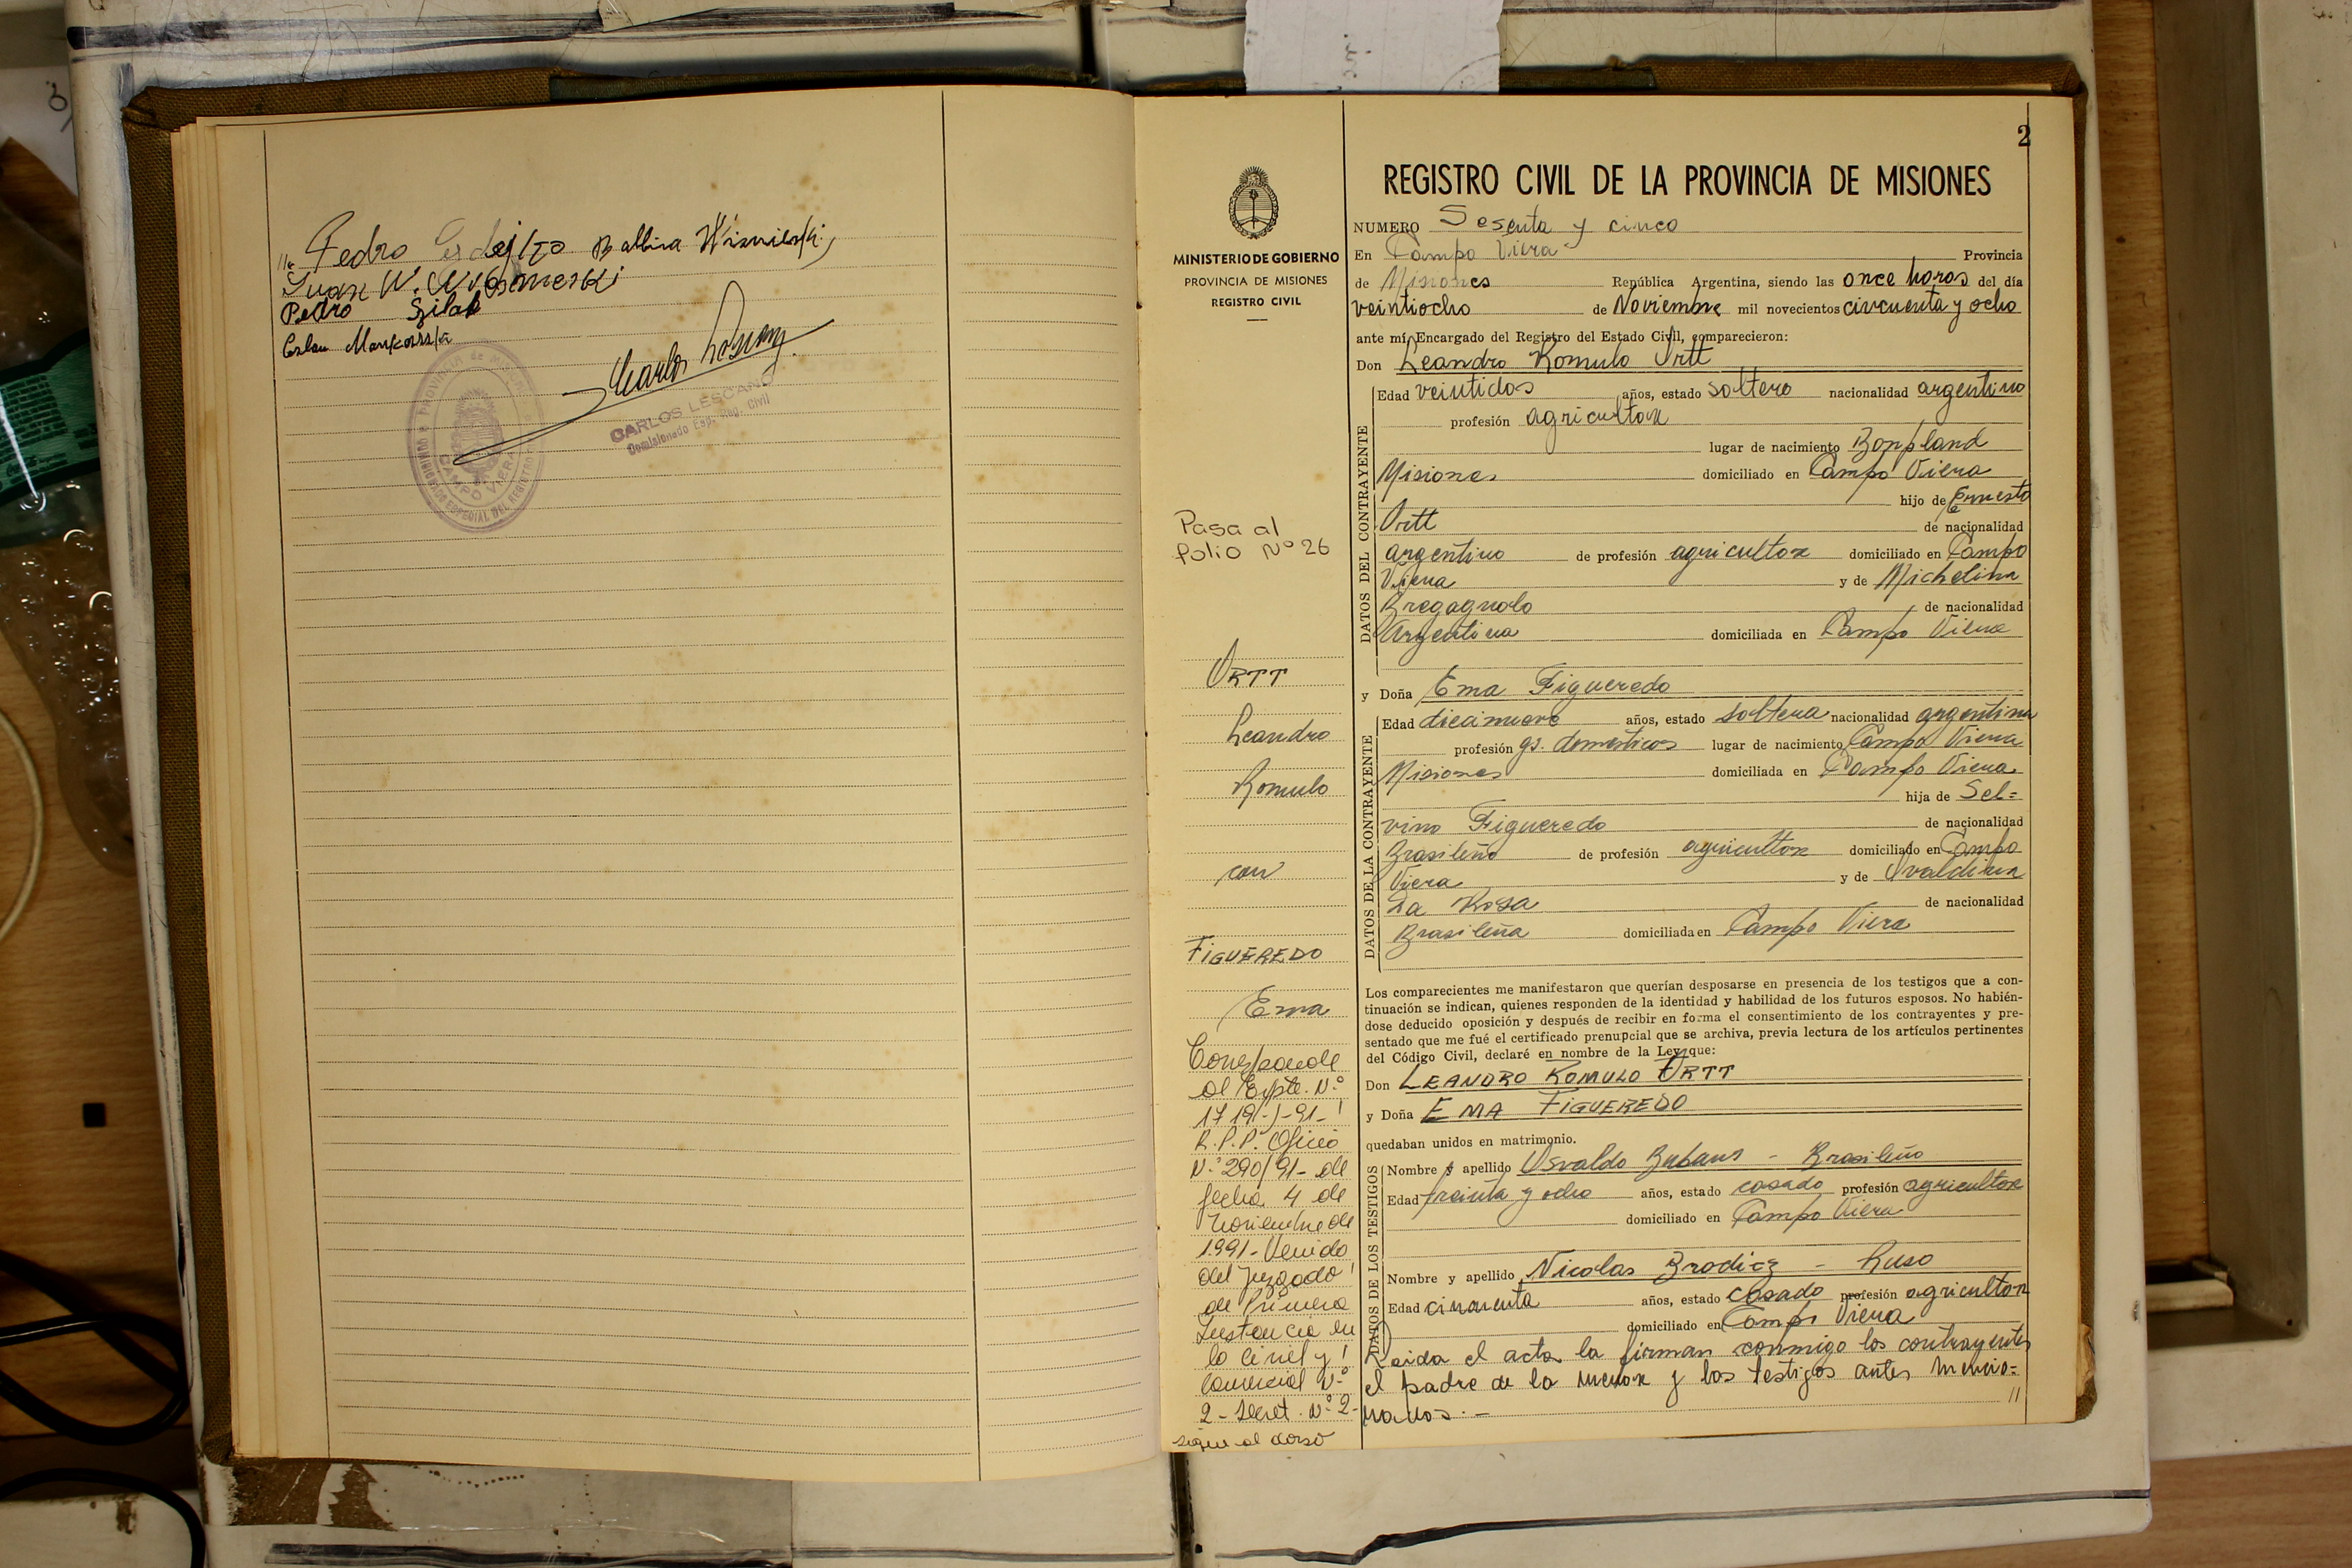 Pedro Balbina Wisnievski
Juan W.
Pedro Szilab
Carlos Lescano
CARLOS LESCANO
Comisionado Esp. Reg. Civil
CAMPO VIERA
2
REGISTRO CIVIL DE LA PROVINCIA DE MISIONES
MINISTERIO DE GOBIERNO
PROVINCIA DE MISIONES
REGISTRO CIVIL
Pasa al
folio Nº 26
ORTT
Leandro
Romulo
con
FIGUEREDO
Ema
Corresponde
al Expte. Nº
R.P.P. Oficio
Nº 290/91- de
fecha 4 de
Noviembre de
1.991- Venido
del Juzgado
de Primera
Instancia en
lo Civil y
Comercial Nº
2 - Secret. Nº 2-
sigue al dorso
NUMERO Sesenta y cinco
En Campo Viera Provincia
de Misiones República Argentina, siendo las once horas del día
veintiocho de Noviembre mil novecientos cincuenta y ocho
ante mí, Encargado del Registro del Estado Civil, comparecieron:
Don Leandro Romulo Ortt
DATOS DEL CONTRAYENTE
Edad veintidos años, estado soltero nacionalidad argentino
profesión agricultor
lugar de nacimiento Bonpland
Misiones domiciliado en Campo Viera
hijo de Ernesto
Ortt de nacionalidad
argentino de profesión agricultor domiciliado en Campo
Viera y de Michelina
Bregagnolo de nacionalidad
Argentina domiciliada en Campo Viera
y Doña Ema Figueredo
DATOS DE LA CONTRAYENTE
Edad diecinueve años, estado soltera nacionalidad argentina
profesión qs. domesticos lugar de nacimiento Campo Viera
Misiones domiciliada en Campo Viera
hija de Sel=
vino Figueredo de nacionalidad
Brasileño de profesión agricultor domiciliado en Campo
Viera y de Ovaldina
Da Rosa de nacionalidad
Brasileña domiciliada en Campo Viera
Los comparecientes me manifestaron que querían desposarse en presencia de los testigos que a con-
tinuación se indican, quienes responden de la identidad y habilidad de los futuros esposos. No habién-
dose deducido oposición y después de recibir en forma el consentimiento de los contrayentes y pre-
sentado que me fué el certificado prenupcial que se archiva, previa lectura de los artículos pertinentes
del Código Civil, declaré en nombre de la Ley que:
Don LEANDRO ROMULO ORTT
y Doña EMA FIGUEREDO
quedaban unidos en matrimonio.
DATOS DE LOS TESTIGOS
Nombre y apellido Osvaldo - Brasileño
Edad treinta y ocho años, estado casado profesión agricultor
domiciliado en Campo Viera
Nombre y apellido Nicolas - Ruso
Edad cincuenta años, estado casado profesión agricultor
domiciliado en Campo Viera
Leida el acta la firman conmigo los contrayentes
el padre de la menor y los testigos antes mencio=
nados.- //